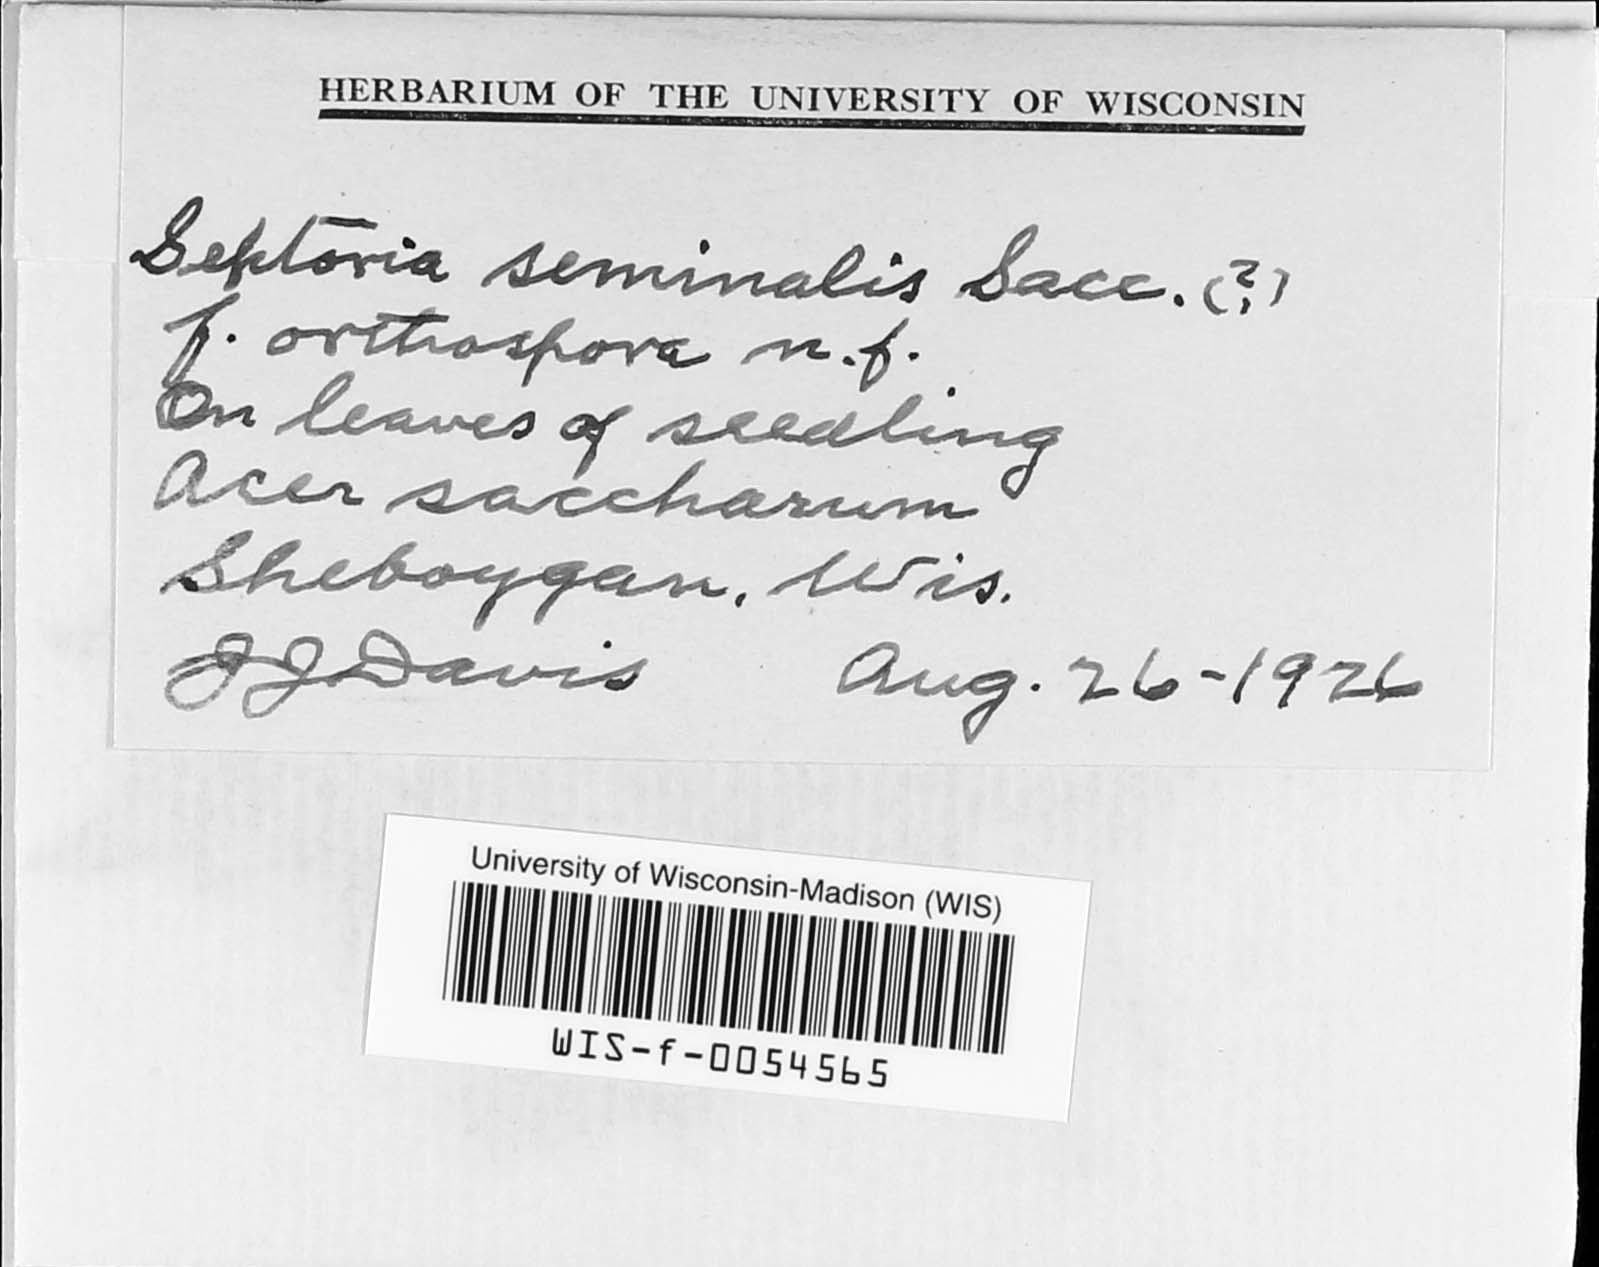 HERBARIUM OF THE UNIVERSITY OF WISCONSIN
Septoria seminalis Sacc. (?)
f. orthospora n.f.
On leaves of seedling
Acer saccharum
Sheboygan, Wis.
JJDavis Aug. 26-1926
University of Wisconsin-Madison (WIS)
WIS-f-0054565